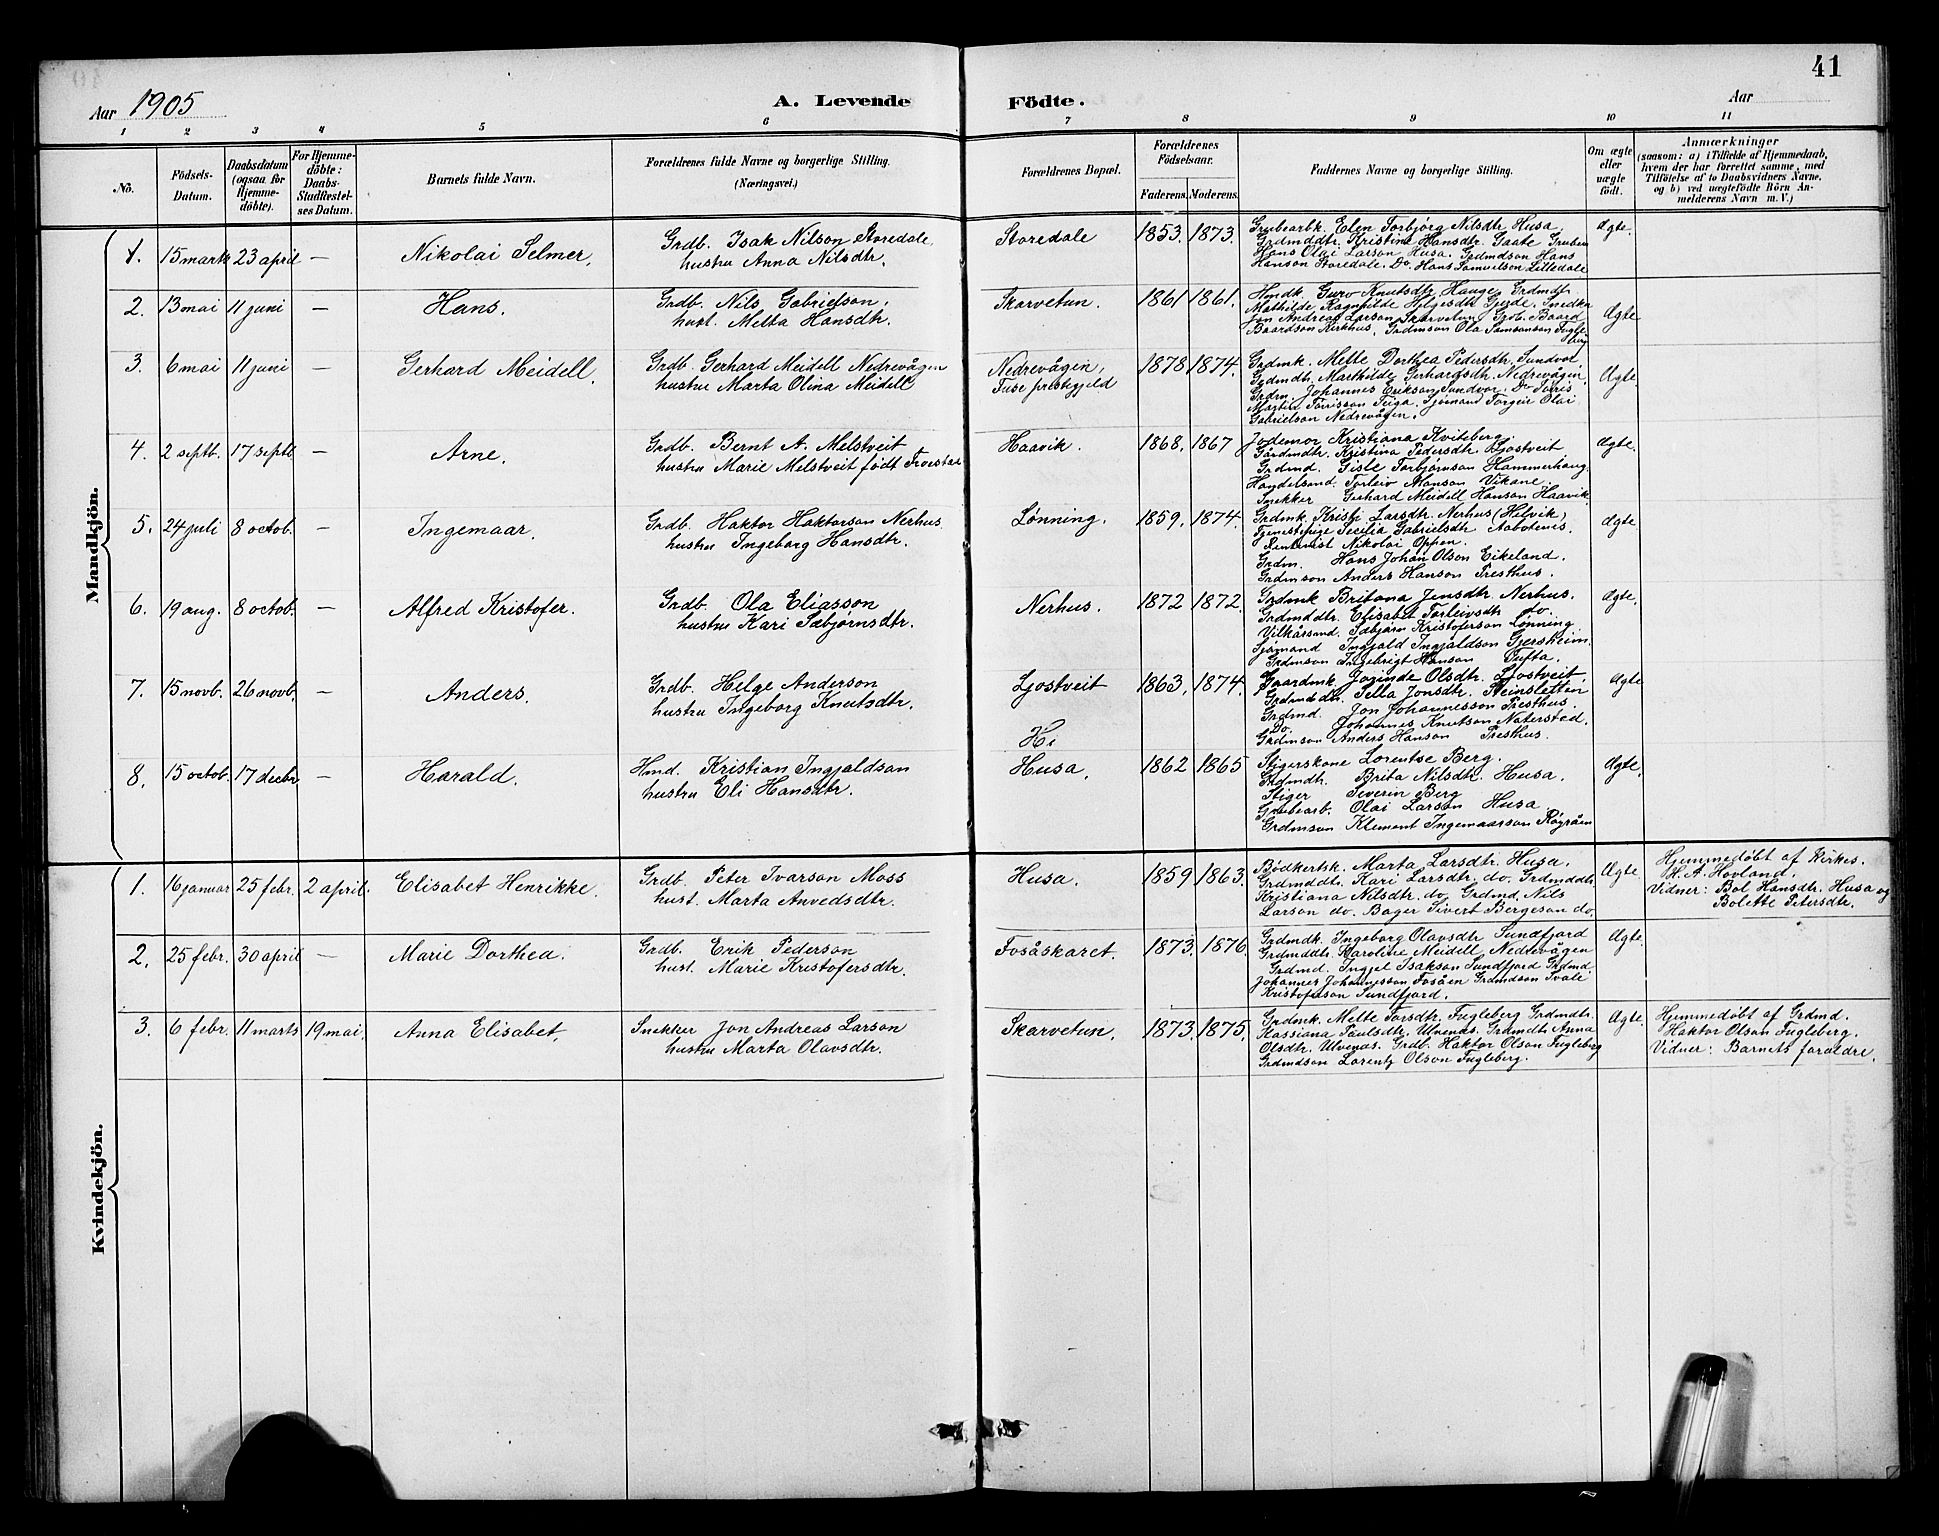 41
Aar 1905
A. Levende Födte.
Aar
1 2 3 4 5 6 7 8 9 10 11
No.
Födsels-Datum.
Daabsdatum (ogsaa for Hjemme-döbte).
For Hjemme-döbte: Daabs-Stadfæstel-ses Datum.
Barnets fulde Navn.
Forældrenes fulde Navne og borgerlige Stilling. (Næringsvei.)
Forældrenes Bopæl.
Forældrenes Födselsaar.
Faderens. Moderens.
Faddernes Navne og borgerlige Stilling.
Om ægte eller uægte födt.
Anmærkninger
(saasom: a) i Tilfælde af Hjemmedaab, hvem der har forrettet samme, med Tilföielse af to Daabsvidners Navne, og b) ved uægtefödte Börn An-melderens Navn m. V.)
Mandkjön.
1. 15 marts 23 april — Nikolai Selmer.
Grdb. Isak Nilson Storedale,
hustru Anna Nilsdtr.
Storedale 1853. 1873.
Grubearbk. Elen Torbjørg Nilsdtr Husa
Grdmddtr. Kristine Hansdtr. Gaate Gruben
Hans Olai Larson Husa. Grdmdson Hans
Hanson Storedale. Do. Hans Samuelson Lilledale
Ægte.
2. 13 mai 11 juni — Hans.
Grdb. Nils Gabrielson,
hust. Metta Hansdtr.
Skarvetun. 1861 1861.
Hmdk. Guro Knutsdtr, Hauge, Grdmdt.
Mathilde Ragnhilde Helgesdtr Gjerde. Snedker
Jon Andreas Larson Skarvetun. Grb. Baard
Baardson Kirkhus, Grdmson Ola Samsonson Fugle-
berg
Ægte
3. 6 mai 11 juni — Gerhard Meidell.
Grdb. Gerhard Meidell Nedrevågen
hustru Marta Olina Meidell
Nedrevågen,
Fuse prestegjeld
1878. 1874.
Grdmk. Mette Dorthea Pedersdtr. Sundvor
Grdmdtr. Marthilde Gerhardsdtr. Nedrevågen.
Grdm. Johannes Erikson Sundvor. Do Toris
Martin Torrisson Teiga. Sjømand Torgeir Olai
Gabrielson Nedrevågen.
Ægte.
4. 2 septb. 17 septb — Arne.
Grdb. Bernt A. Melstveit
hustru Marie Melstveit født
Haavik. 1868. 1867
Jodemor Kristiana Kviteberg.
Gårdmdtr. Kristina Pedersdtr. Ljostveit
Grdmd. Gisle Torbjørnson Hammerhaug.
Handelsmd. Torleiv Monson Vikane.
Snekker Gerhard Meidell Hanson Haavik.
Ægte.
5. 24 juli 8 octob. — Ingemaar.
Grdb. Haktor Haktorson Nerhus.
hustru Ingeborg Hansdtr.
Lønning. 1859. 1874.
Grdmk. Kristi Larsdtr. Nerhus (Helvik)
Tjenestepige Secilia Gabrielsdtr Aabotenes.
Rentenist Nikolai Oppen.
Grdm. Hans Johan Olson Eikeland.
Grdmson Anders Hanson Presthus.
Ægte
6. 19 aug. 8 octob. — Alfred Kristofer.
Grdb. Ola Eliasson
hustru Kari Sæbjørnsdtr.
Nerhus. 1872 1872.
Grdmk Britana Jensdtr. Nerhus.
Grdmddtr. Elisabet Torleivsdtr do.
Vilkårsmd. Sæbjørn Kristoferson Lønning.
Sjømand Ingjald Ingjaldson Gjersheim.
Grdmson Ingebrigt Hanson Tufta.
Ægte.
7. 15 novb. 26 novb. — Anders.
Grdb. Helge Anderson
hustru Ingeborg Knutsdtr.
Ljostveit 1863. 1874.
Gaardmk. Jorinde Olsdtr. Ljostveit.
Grdmddtr. Sella Jonsdtr. Steinsletten
Grdmd. Jon Johannesson Presthus.
Do. Johannes Knutson Naterstad.
Grdmson Anders Hanson Presthus.
Ægte
Hi
8. 15 octob. 17 decbr — Harald.
Hmd. Kristian Ingjaldson
hustru Eli Hansdtr.
Husa. 1862 1865
Stigerskone Lorentse Berg.
Grdmdtr. Brita Nilsdtr. Husa.
Stiger Severin Berg
Grubearb. Olai Larson Husa.
Grdmson Klement Ingemaarson Røyråen
Ægte.
Kvindekjön.
1. 16 januar 25 febr. 2 april. Elisabet Henrikke.
Grdb. Peter Ivarson Moss
hust. Marta Anvedsdtr.
Husa. 1859 1863.
Bødkertsk. Marta Larsdtr. Husa.
Grdmddtr. Kari Larsdtr. do. Grdmddtr.
Kristiana Nilsdtr. do. Grdmd. Nils
Larson do. Bager Sivert Bergeson do.
Ægte
Hjemmedøbt af Kirkes.
H. A. Hovland.
Vidner: Bol Hansdtr. Husa og
Bolette Petersdtr.
2. 25 febr. 30 april — Marie Dorthea.
Grdb. Erik Pederson
hust. Marie Kristofersdtr.
Fosåskaret. 1873. 1876.
Grdmdk. Ingeborg Olavsdtr Sundfjord
Grdmddtr. Karoline Meidell Nedrevågen
Grdmd. Ingjel Isakson Sundfjord Grdmd.
Johannes Johannesson Fosåen Grdmdson Tvale
Kristoferson Sundfjord.
Ægte.
3. 6 febr. 11 marts 19 mai. Anna Elisabet.
Snekker Jon Andreas Larson
hustru Marta Olavsdtr.
Skarvetun. 1873. 1875.
Grdmk. Mette Torsdtr. Fugleberg Grdmdtr.
Kassiana Paulsdtr. Ulvenes. Grdmdtr. Anna
Olsdtr. Ulvenes. Grdb. Haktor Olson Fugleberg
Grdmdson Lorentz Olson Fugleberg.
Ægte.
Hjemmedøbt af Grdmd.
Haktor Olson Fugleberg.
Vidner: Barnets forældre.